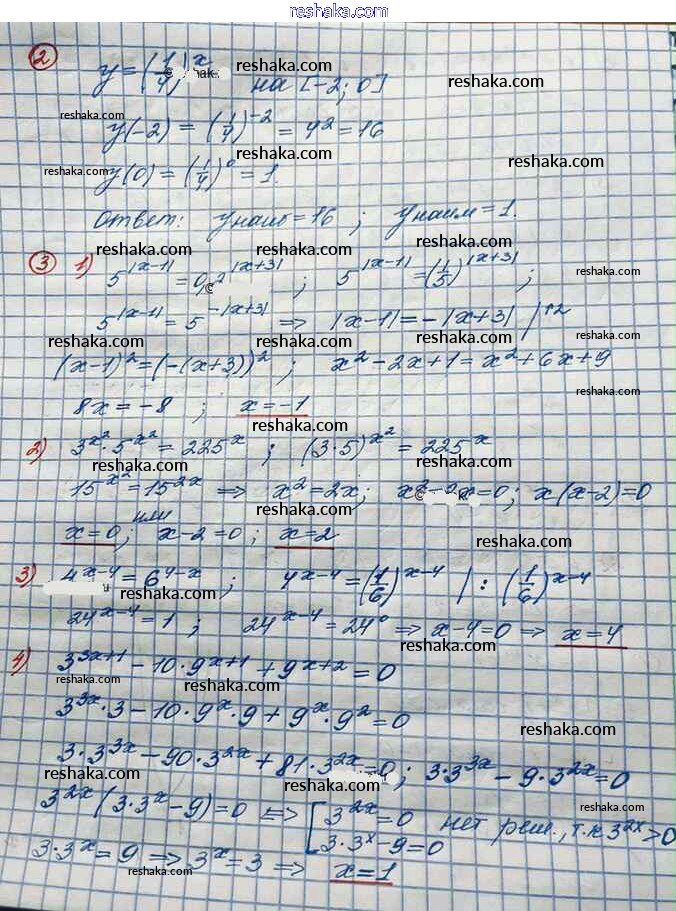 reshaka.com
2 y=(1/4)^x на [-2; 0]
y(-2) = (1/4)^-2 = 4^2 = 16
y(0) = (1/4)^0 = 1.
Ответ: y наиб = 16 ; y наим = 1.
3 1) 5^|x-1| = 0,2^|x+3| ; 5^|x-1| = (1/5)^|x+3| ;
5^|x-1| = 5^-|x+3| => |x-1| = -|x+3| |↑2
(x-1)^2 = (-(x+3))^2 ; x^2-2x+1 = x^2+6x+9
8x = -8 ; x = -1
2) 3^x^2 · 5^x^2 = 225^x ; (3·5)^x^2 = 225^x
15^x^2 = 15^2x => x^2 = 2x; x^2-2x=0; x(x-2)=0
x=0; или x-2=0; x=2
3) 4^x-4 = 6^4-x ; 4^x-4 = (1/6)^x-4 | : (1/6)^x-4
24^x-4 = 1 ; 24^x-4 = 24^0 => x-4=0 => x=4
4) 3^3x+1 - 10·9^x+1 + 9^x+2 = 0
3^3x·3 - 10·9^x·9 + 9^x·9^2 = 0
3·3^3x - 90·3^2x + 81·3^2x = 0; 3·3^3x - 9·3^2x = 0
3^2x (3·3^x - 9) = 0 <=> [ 3^2x = 0 нет реш., т.к 3^2x > 0
3·3^x - 9 = 0
3·3^x = 9 => 3^x = 3 => x = 1